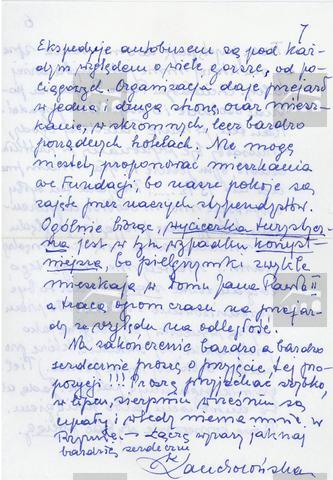 7
Ekspedycje autobusem są pod każ-
dym względem o wiele gorsze, od po-
ciągowych. Organizacja daje przejazd
w jedną i drugą stronę, oraz miesz-
kanie, w skromnych, lecz bardzo
porządnych hotelach. Nie mogę
niestety proponować mieszkania
we Fundacji, bo nasze pokoje są
zajęte przez naszych stypendystów.
Ogólnie biorąc, wycieczka turystycz-
na jest w tym wypadku korzyst-
niejsza, bo pielgrzymki zwykle
mieszkają w Domu Jana Pawła II
a tracą ogrom czasu na przejaz-
dy ze względu na odległość.
Na zakończenie bardzo a bardzo
serdecznie proszę o przyjęcie tej pro-
pozycji!!! Proszę przyjechać szybko,
w lipcu, sierpniu wrześniu są
upały i wtedy nie ma mnie w
Rzymie. — Łączę wyrazy jak naj
bardziej serdeczne